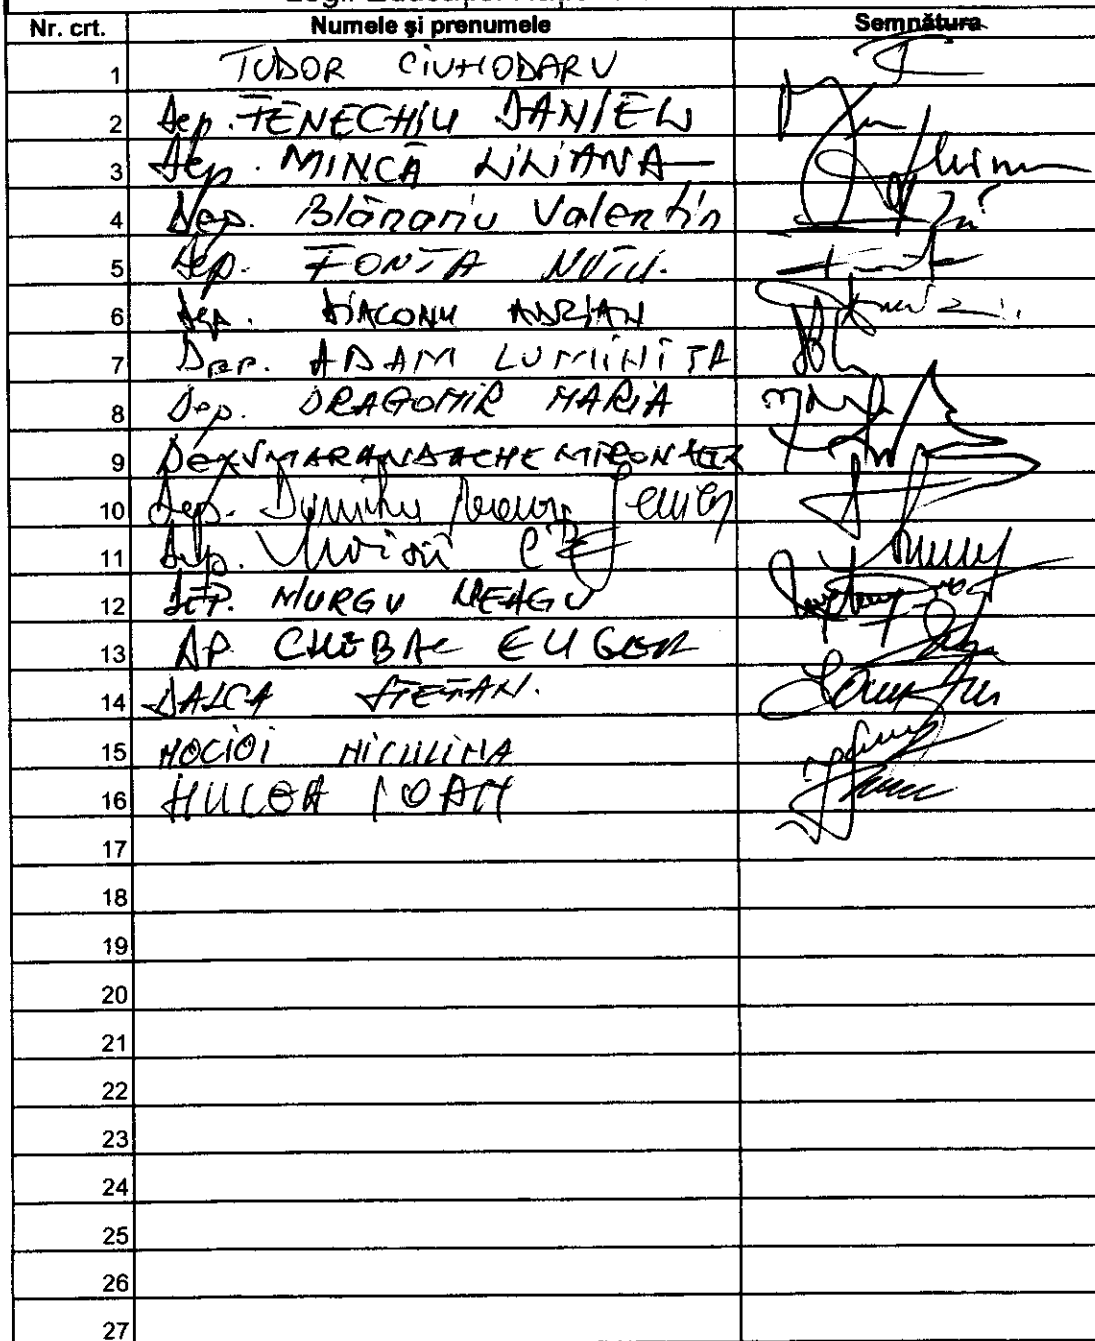 Nr. crt. Numele și prenumele Semnătura
1 TUDOR CIUHODARU
2 Dep. FENECHIU DANIEL
3 Dep. MINCĂ LILIANA
4 Dep. Blănariu Valentin
5 Dep. FONTA NUTU
6 Dep. DIACONU ADRIAN
7 Dep. ADAM LUMINIȚA
8 Dep. DRAGOMIR MARIA
9
10 Dep. Dumitru
11 Dep.
12 DEP. MURGU NEAGU
13 DP. CHEBAC EUGEN
14 DALCA ȘTEFAN.
15 MOCIOI NICULINA
16 HULEA IOAN
17
18
19
20
21
22
23
24
25
26
27